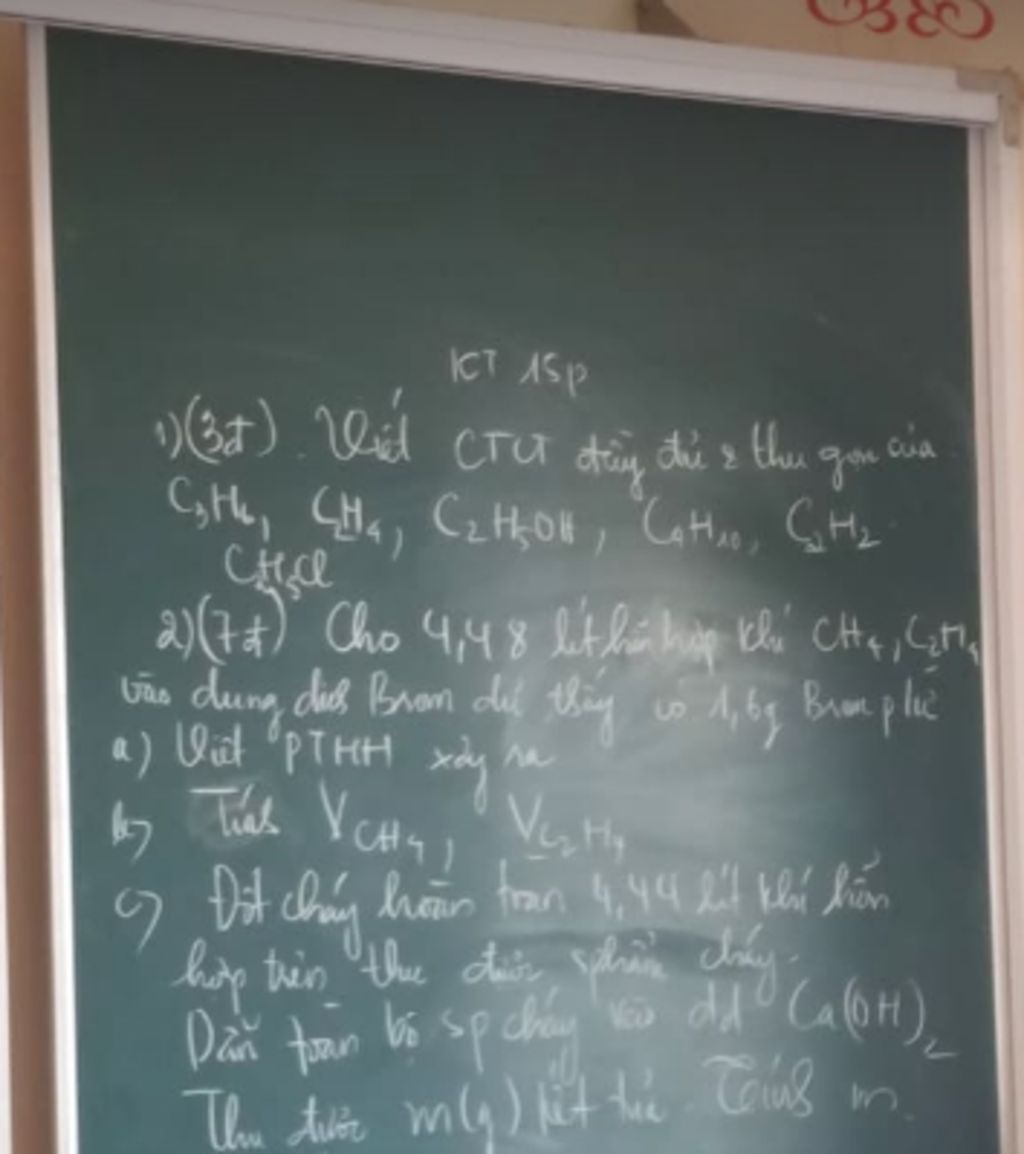 KT 15p
1)(3đ). Viết CTCT đầy đủ & thu gọn của
C₃H₆, C₂H₄, C₂H₅OH, C₄H₁₀, C₂H₂
C₂H₅Cl
2)(7đ) Cho 4,48 lít hỗn hợp khí CH₄, C₂H₄
vào dung dịch Brom dư thấy có 1,6g Brom p/ứ
a) Viết PTHH xảy ra
b) Tính V CH₄, V C₂H₄
c) Đốt cháy hoàn toàn 4,44 lít khí hỗn
hợp trên thu được sphẩm cháy.
Dẫn toàn bộ sp cháy vào dd Ca(OH)₂
Thu được m(g) kết tủa. Tính m.